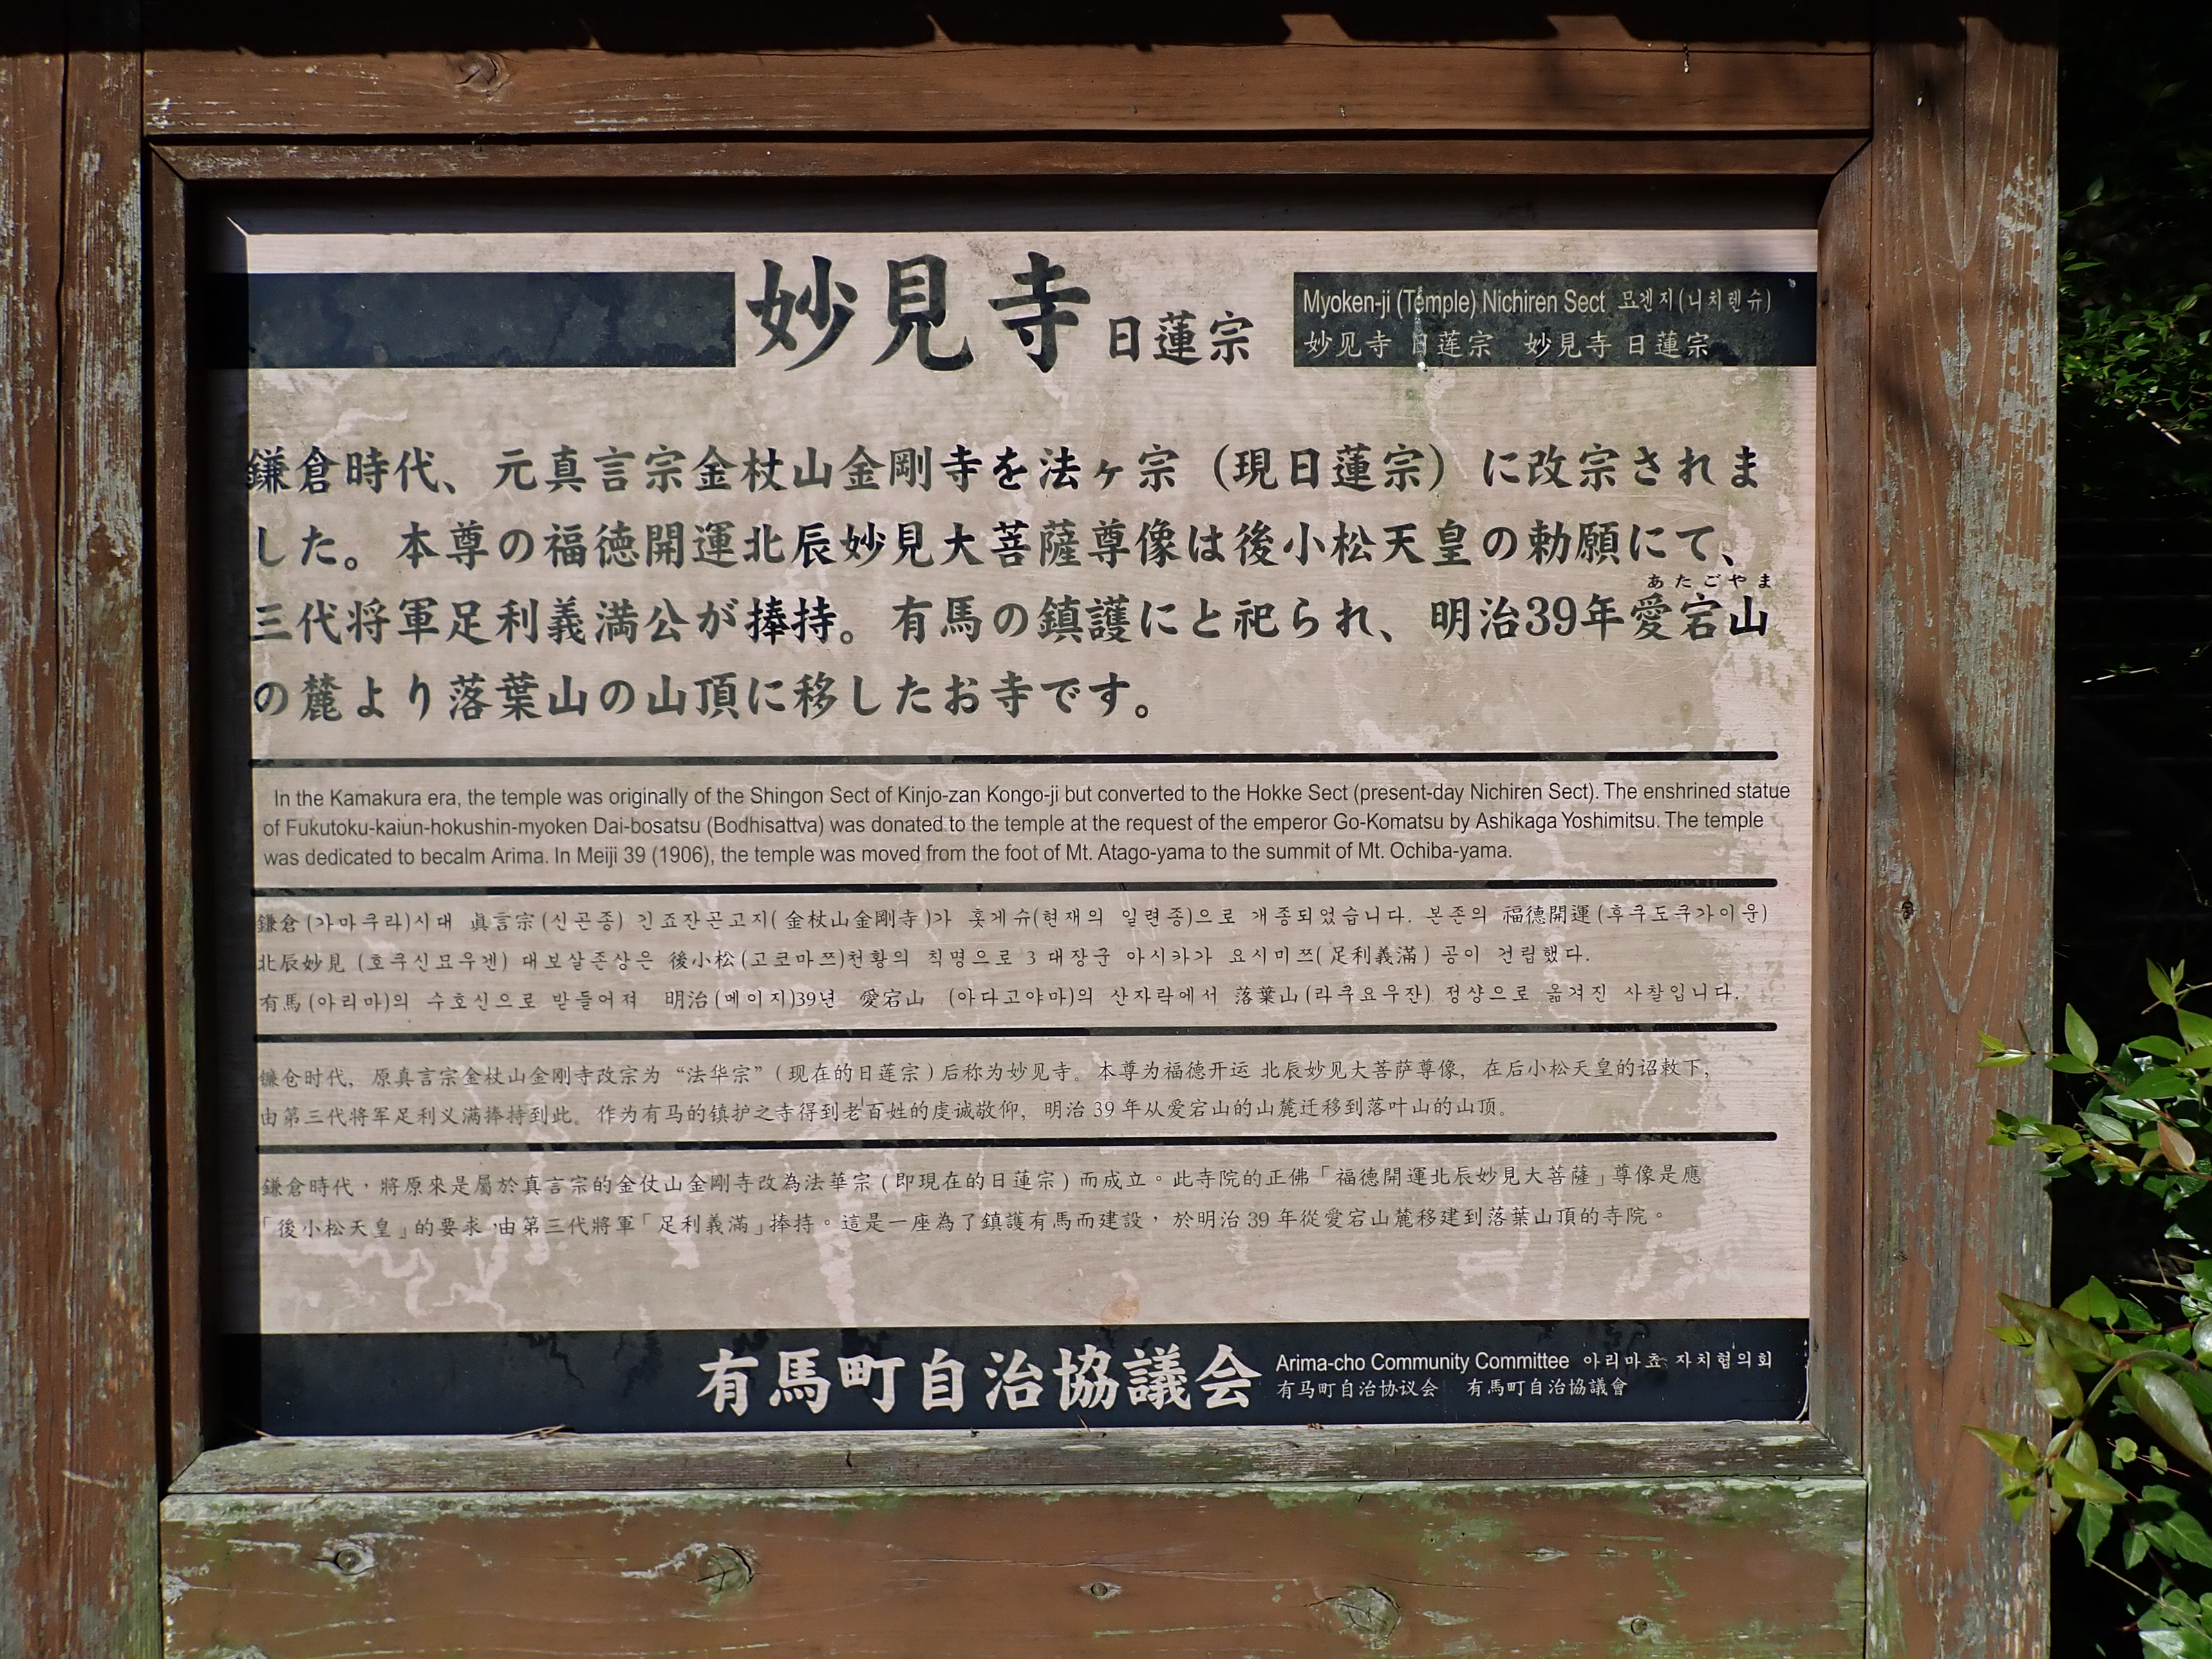 妙見寺 日蓮宗
Myoken-ji (Temple) Nichiren Sect 묘겐지(니치렌슈)
妙见寺 日莲宗 妙見寺 日蓮宗
鎌倉時代、元真言宗金杖山金剛寺を法ヶ宗（現日蓮宗）に改宗されま
した。本尊の福徳開運北辰妙見大菩薩尊像は後小松天皇の勅願にて、
あたごやま
三代将軍足利義満公が捧持。有馬の鎮護にと祀られ、明治39年愛宕山
の麓より落葉山の山頂に移したお寺です。
In the Kamakura era, the temple was originally of the Shingon Sect of Kinjo-zan Kongo-ji but converted to the Hokke Sect (present-day Nichiren Sect). The enshrined statue
of Fukutoku-kaiun-hokushin-myoken Dai-bosatsu (Bodhisattva) was donated to the temple at the request of the emperor Go-Komatsu by Ashikaga Yoshimitsu. The temple
was dedicated to becalm Arima. In Meiji 39 (1906), the temple was moved from the foot of Mt. Atago-yama to the summit of Mt. Ochiba-yama.
鎌倉(가마쿠라)시대 眞言宗(신곤종) 긴죠잔곤고지(金杖山金剛寺)가 홋게슈(현재의 일련종)으로 개종되었습니다. 본존의 福德開運(후쿠도쿠가이운)
北辰妙見 (호쿠신묘우겐) 대보살존상은 後小松(고코마쯔)천황의 칙명으로 3 대장군 아시카가 요시미쯔(足利義滿) 공이 건립했다.
有馬(아리마)의 수호신으로 받들어져 明治(메이지)39년 愛宕山 (아다고야마)의 산자락에서 落葉山(라쿠요우잔) 정상으로 옮겨진 사찰입니다.
镰仓时代，原真言宗金杖山金刚寺改宗为“法华宗”(现在的日莲宗)后称为妙见寺。本尊为福德开运 北辰妙见大菩萨尊像，在后小松天皇的诏敕下，
由第三代将军足利义满捧持到此。作为有马的镇护之寺得到老百姓的虔诚敬仰，明治 39 年从爱宕山的山麓迁移到落叶山的山顶。
鎌倉時代，將原來是屬於真言宗的金仗山金剛寺改為法華宗(即現在的日蓮宗)而成立。此寺院的正佛「福德開運北辰妙見大菩薩」尊像是應
「後小松天皇」的要求 由第三代將軍「足利義滿」捧持。這是一座為了鎮護有馬而建設，於明治 39 年從愛宕山麓移建到落葉山頂的寺院。
有馬町自治協議会
Arima-cho Community Committee 아리마쵸 자치협의회
有马町自治协议会 有馬町自治協議會